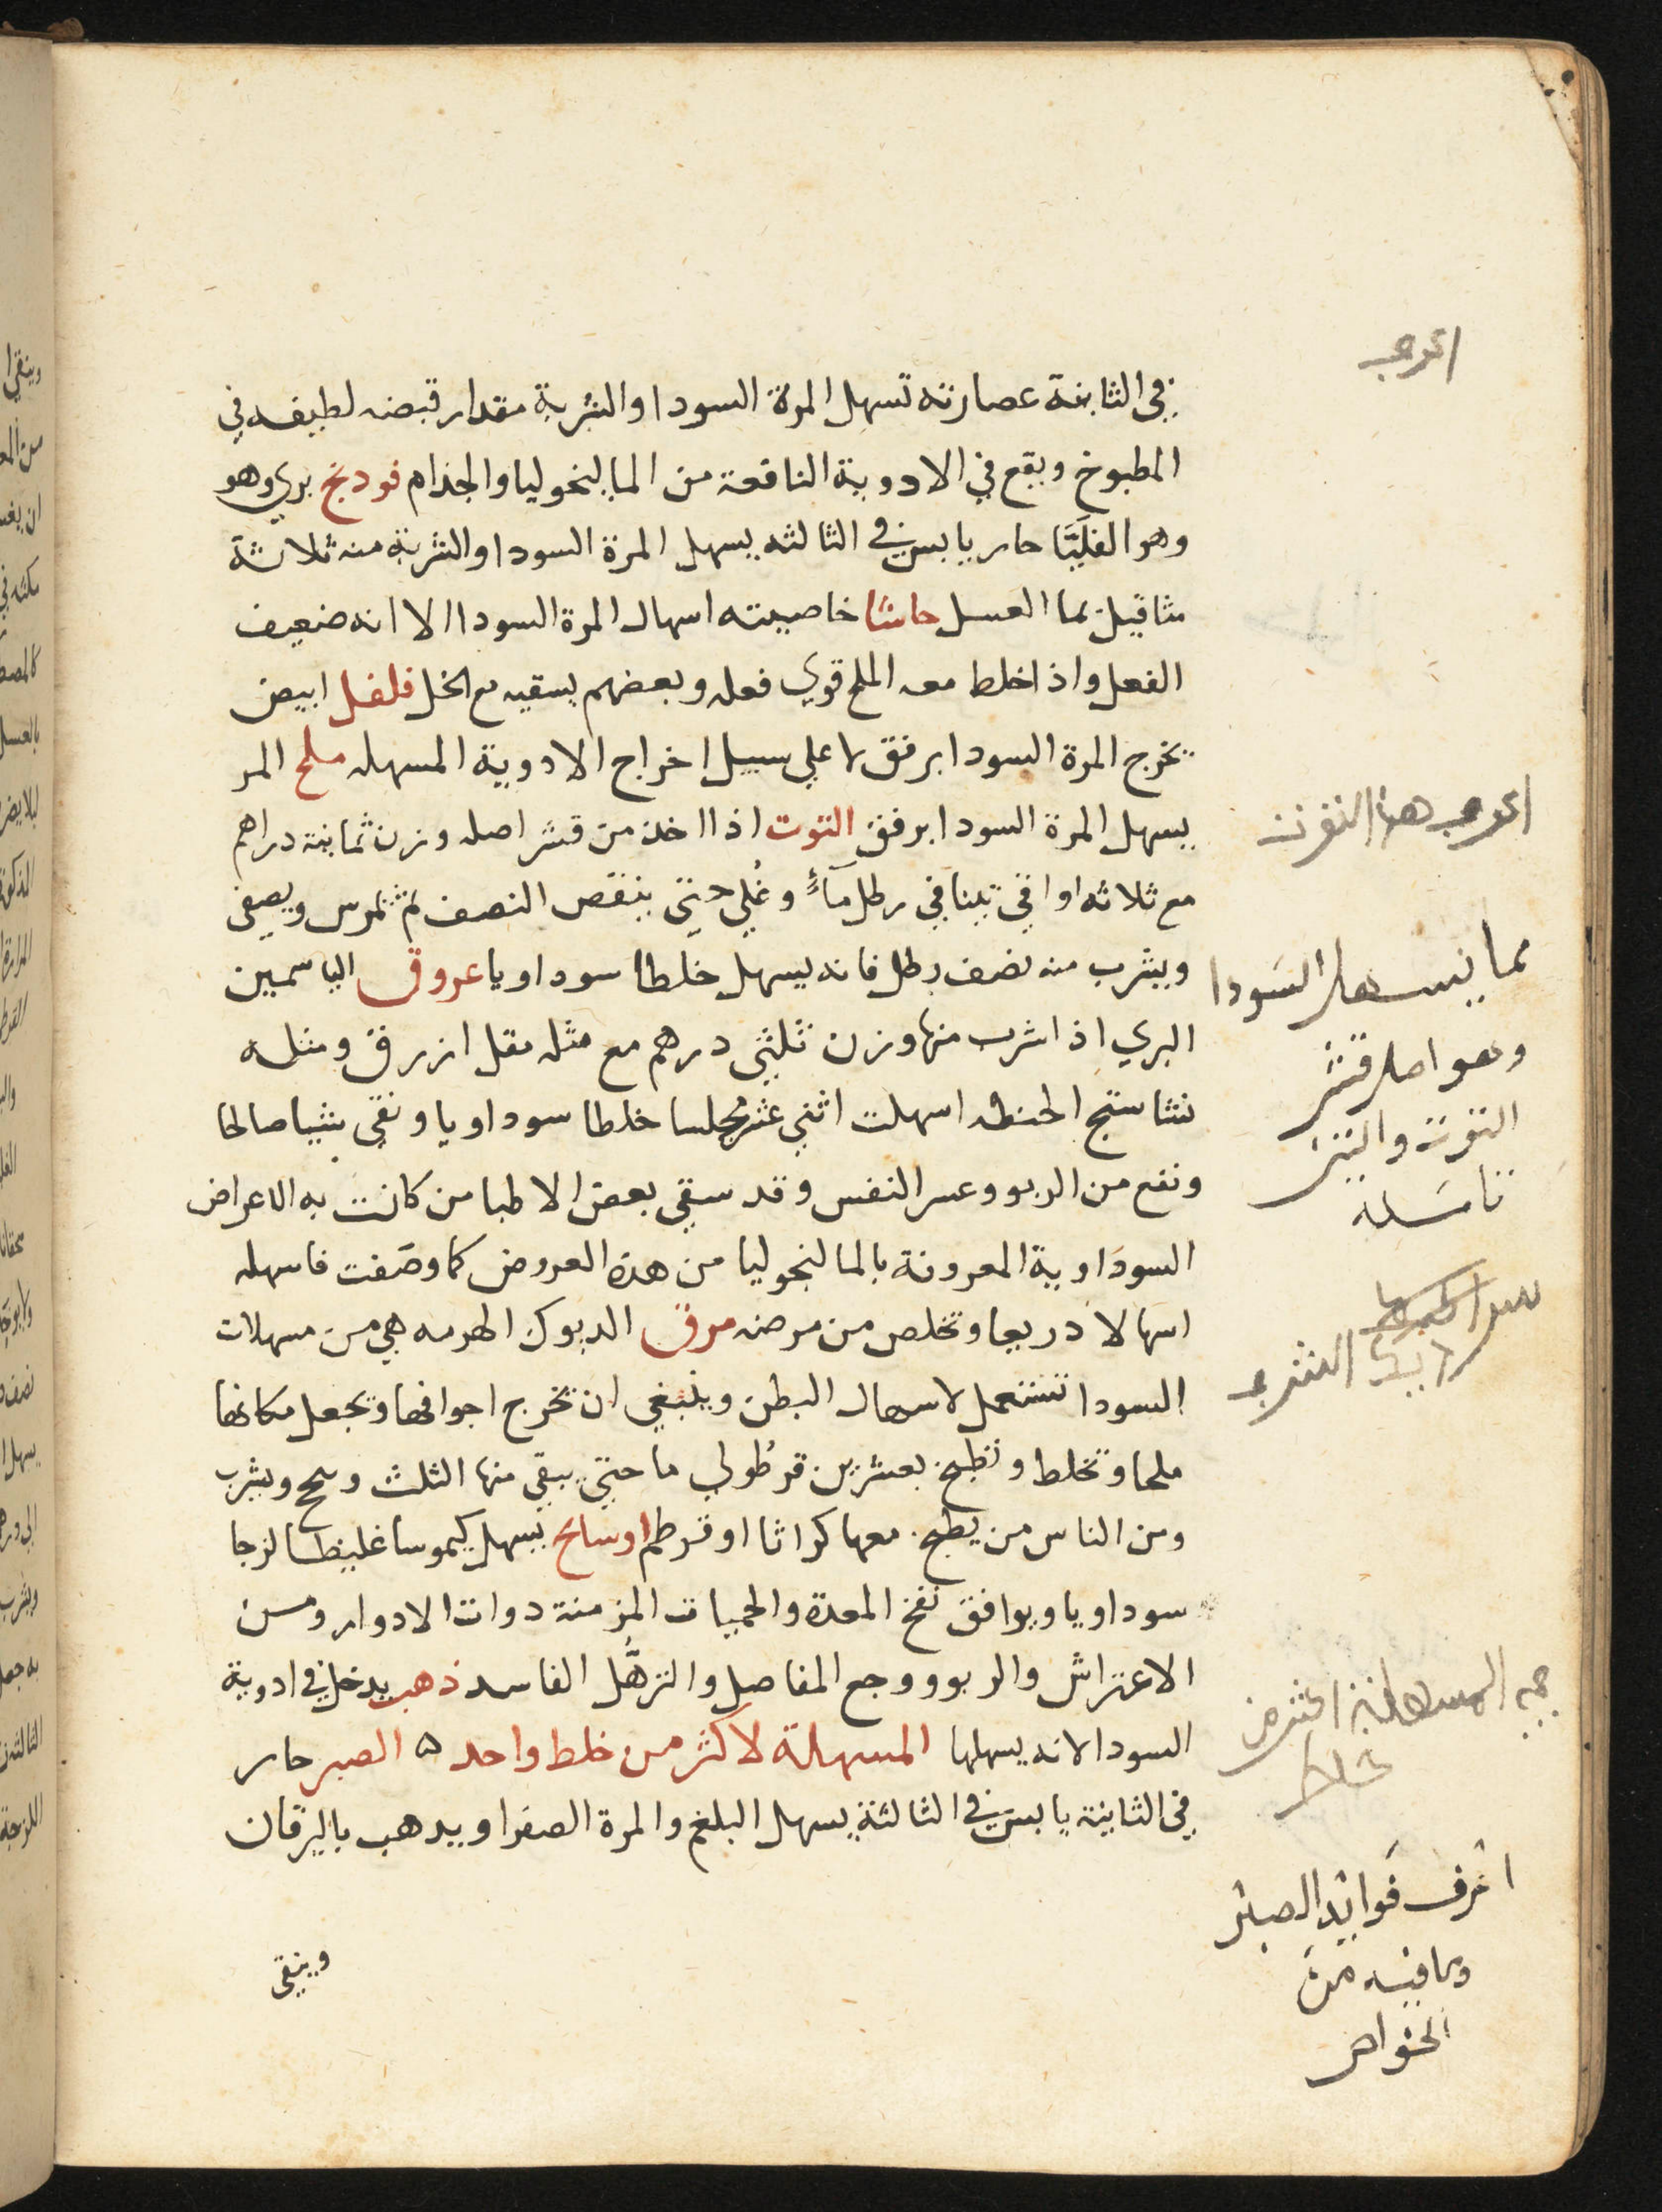 في الثانية عصارته تسهل المرة السودا والشربة مقدار قبضه لطيفه في
المطبوخ ويقع في الادوية النافعة من الماليخوليا والجذام فودنج بري وهو
وهو الفليَّا حار يابس في الثالثه يسهل المرة السودا والشربة منه ثلاثة
مثاقيل بما العسل حاشا خاصيته اسهال المرة السودا الا انه ضعيف
الفعل واذا خلط معه الملح قوي فعله وبعضهم يسقيه مع الخل فلفل ابيض
يخرج المرة السودا برفق لا علي سبيل اخراج الادوية المسهله ملح المر
يسهل المرة السودا برفق التوت اذا اخذ من قشر اصله وزن ثمانية دراهم
مع ثلاثه اواقي تينا في رطل مآءٍ وغُلي حتي ينقص النصف ثم تمرس ويصفى
ويشرب منه نصف رطل فانه يسهل خلطا سوداويا عروق الياسمين
البري اذا شرب منها وزن ثلثي درهم مع مثله مقل ازرق ومثله
نشاستج الحنطه اسهلت اثني عشر مجلسا خلطا سوداويا ونقي شيا صالحا
ونفع من الربو وعسر النفس وقد سقي بعض الاطبا من كانت به الاعراض
السوداوية المعروفة بالمالنخوليا من هذه العروض كما وصَفت فاسهله
اسهالا ذريعا وتخلص من مرضه مرق الديوك الهرمه هي من مسهلات
السودا تستعمل لاسهال البطن وينبغي ان تخرج اجوافها وتجعل مكانها
ملحا وتخلط وتطبخ بعشرين قرطُولي ما حتي يبقي منها الثلث وسح ويشرب
ومن الناس من يطبخ معها كراثا او قرطم اوسابح يسهل كيموسا غليظا لزجا
سوداويا ويوافق نفخ المعدة والحميات المزمنة دوات الادوار ومن
الاعتراش والربو ووجع المفاصل والترهَّل الفاسد ذهب يدخل في ادوية
السودا لانه يسهلها المسهلة لاكثر من خلط واحد ه الصبر حار
في الثانية يابس في الثالثة يسهل البلغم والمرة الصفرا ويدهب باليرقان
وينقي
اعرف
اعرف هذا التوت
مما يسهل السَودا
وهو اصل قشر
التوت والتين
اعرف فَوايد الصبر
وما فيه من
الخواص